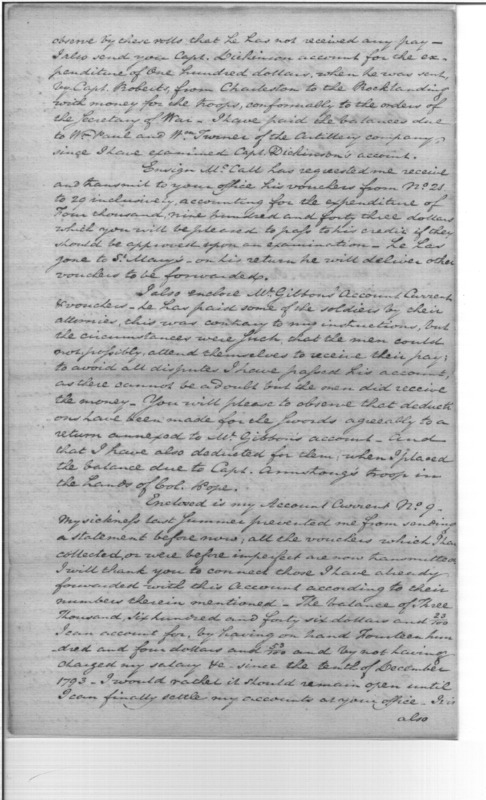 observe by these rolls that he has not received any pay —
I also send you Capt. Dickinson account for the ex-
penditure of One hundred dollars, when he was sent
by Capt. Roberts, from Charleston to the Rocklanding
with money for the troops, conformally to the orders of
the Secretary of War — I have paid the balances due
to Wm Paul and Wm Turner of the Artillery company,
since I have examined Capt. Dickinson's account.
Ensign Mc Call has requested me receive
and transmit to your office his vouchers from No 21
to 29 inclusively, accounting for the expenditure of
Four thousand, nine hundred and forty three dollars
which you will be pleased to pass to his credit if they
should be approved upon an examination — he has
gone to St Marys — on his return he will deliver other
vouchers to be forwarded.
I also enclose Mr Gibbons' Account Current
& vouchers — he has paid some of the soldiers by their
attornies, this was contrary to my instructions, but
the circumstances were such, that the men could
not possibly attend themselves to receive their pay;
to avoid all disputes I have passed his account,
as there cannot be a doubt but the men did receive
the money — You will please to observe that deducti
ons have been made for the swords agreeably to a
return annexed to Mr Gibbons account — And
that I have also deducted for them, when I placed
the balance due to Capt. Armstrong's troop in
the hands of Col. Pope.
Enclosed is my Account Current No 9 —
My sickness last Summer prevented me from sending
a statement before now; all the vouchers which I have
collected, or were before imperfect are now transmitted
I will thank you to connect those I have already
forwarded with this Account according to their
numbers therein mentioned — The balance of Three
Thousand, Six hundred and forty six dollars and
I can account for, by having on hand Fourteen hun
dred and four dollars and and by not having
charged my salary &c. since the tenth of December
1793 — I would rather it should remain open until
I can finally settle my accounts at your office — It is
also